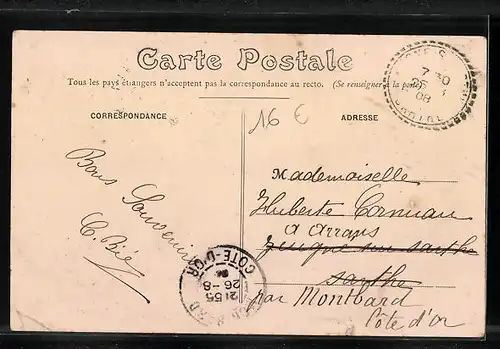 Carte Postale
Tous les pays étrangers n'acceptent pas la correspondance au recto. (Se renseigner à la poste)
CORRESPONDANCE
16 €
ADRESSE
7 30
26
08
Bons Souvenirs
Mademoiselle
Huberte Cornuau
a Arrans
sarthe
par Montbard
Côte d'or
COTE-D'OR
21 55
26-8